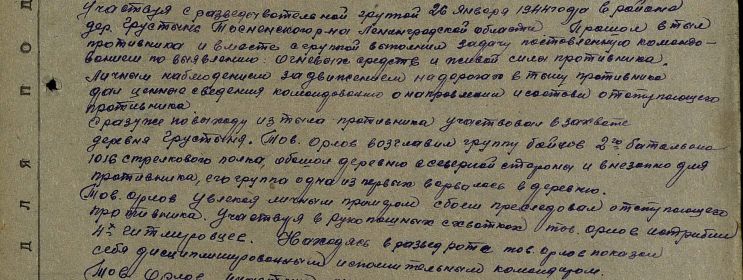 Участвуя с разведывательной группой 26 Января 1944 года в районе
дер. Грустыня Тосненского р-на Ленинградской области Прошол в тыл
противника и вместе с группой выполнил задачу поставленную командо-
ванием по выявлению огневых средств и живой силы противника.
Личным наблюдением за движением на дорогах в тылу противника
дал ценные сведения командованию о направлении и составе отступающего
противника
Сразу же по выходу из тыла противника участвовал в захвате
деревня Грустыня. Тов. Орлов возглавил группу бойцов 2го батальона
1016 стрелкового полка, обошол деревню с северной стороны и внезапно для
противника, его группа одна из первых ворвалась в деревню.
Тов. Орлов увлекая личным примером своем преследовал отступающего
противника. Участвуя в рукопашных схватках тов. Орлов истребил
4х гитлеровцев. Находясь в разведроте тов. орлов показал
себя дисциплинированным исполнительным командиром.
Тов. Орлов
ДЛЯ ПОД